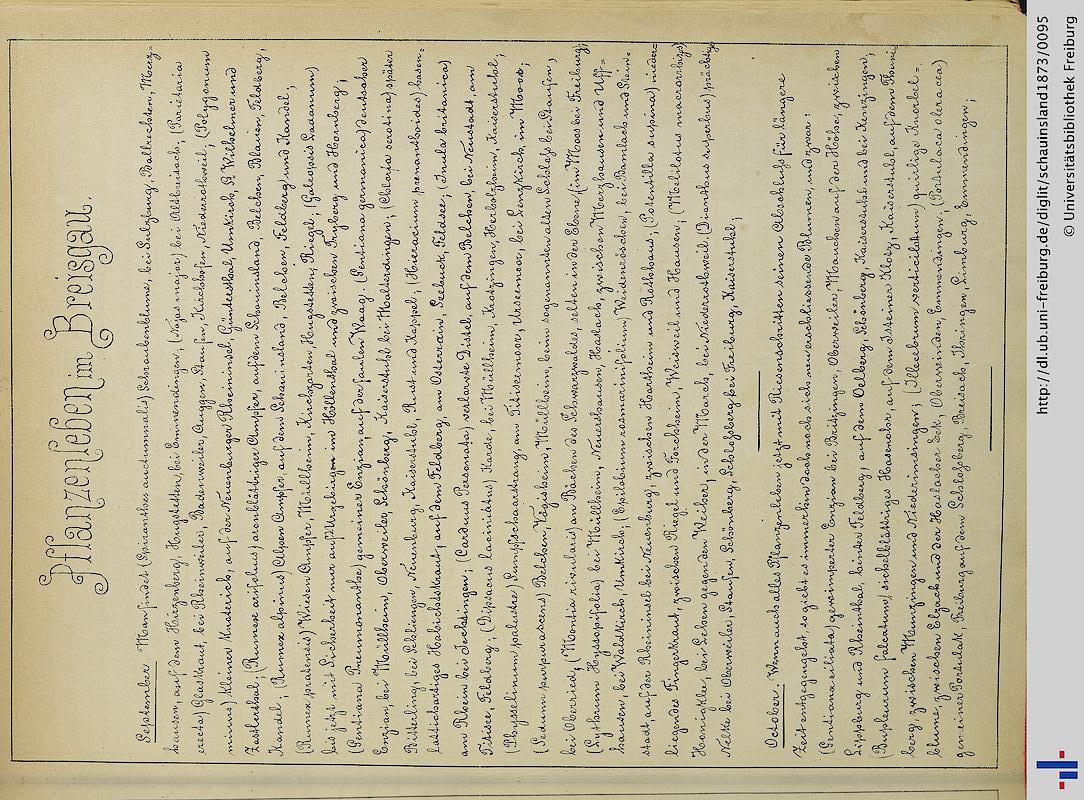 Pflanzenleben im Breisgau.
September. Man findet (Spiranthes auctumnalis) Schraubenblume, bei Sulzburg, Ballrechten, Merz=
hausen, auf dem Hirzenberg, Hugstetten, bei Emmendingen, (Najas major) bei Altbreisach, (Parietaria
erecta) Glaskraut, bei Rheinweiler, Badenweiler, Auggen, Staufen, Kirchhofen, Niederrothweil, (Polygonum
minus) kleiner Knöterich, auf der Neuenburger Rheininsel, Günthersthal, Umkirch, St Wilhelmer und
Zastlerthal, (Rumex arifolius) aronblättriger Ampfer, auf dem Schauinsland, Belchen, Blauen, Feldberg,
Kandel, (Rumex alpinus) Alpen Ampfer, auf dem Schauinsland, Belchen, Feldberg und Kandel;
(Rumex pratensis) Wiesen Ampfer, Müllheim, Kirchzarten, Hugstetten, Riegel, (Galeopsis Ladanum)
bis jetzt mit Sicherheit nur auf im Höllenthal und zwischen Tryberg und Hornberg;
(Gentiana Pneumonanthe) gemeiner Enzian, auf der faulen Waag. (Gentiana germanica) deutscher
Enzian, bei Müllheim, Oberweiler, Schönberg, Kaiserstuhl bei Malterdingen; (Chlora serotina) später
Bitterling, bei Schliengen, Neuenburg, Kaiserstuhl, Rust und Kappel; (Hieracium prenanthoides) hasen=
lattichartiges Habichtskraut, auf dem Feldberg, am Osterrain, Seebuck, Feldsee; (Inula britanica)
am Rhein bei Ichtingen; (Carduus Personata) verlarvte Distel, auf dem Belchen, bei Neustadt, am
Titisee, Feldberg; (Dipsacus laciniatus) Karde, bei Müllheim, Krotzingen, Herbolzheim, Kaiserstuhl,
(Thysselinum palustre) Sumpfhaarstrang, am Titiseemoor, Urseemoor, bei Lenzkirch, im Moos;
(Sedum purpurascens) Belchen, Vögisheim, Müllheim, beim sogenannten alten Schloss bei Staufen,
bei Oberried; (Montia rivularis) an Bächen des Schwarzwaldes, selten in der Ebene (im Moos bei Freiburg)
(Lythrum Hyssopifolia) bei Müllheim, Neuershausen, Haslach, zwischen Merzhausen und Uff=
hausen, bei Waldkirch, Umkirch; (Epilobium rosmarinifolium) Weidenröschen, bei Bamlach und Stein=
stadt, auf der Rheininsel bei Neuenburg, zwischen Hartheim und Rothhaus; (Potentilla supina) nieder=
liegendes Fingerkraut, zwischen Riegel und Forchheim, Weisweil und Hausen; (Melilotus macrorrhizus)
Honigklee, bei Lehen gegen den Weiher, in der March, bei Niederrothweil, (Dianthus superbus) prächtige
Nelke bei Oberweiler, Staufen, Schönberg, Schlossberg bei Freiburg, Kaiserstuhl;
October. Wenn auch alles Pflanzenleben jetzt mit Riesenschritten seinem Abschluss für längere
Zeit entgegengeht, so giebt es immerhin doch noch sich neu erschliessende Blumen, und zwar:
(Gentiana ciliata) gewimperter Enzian bei Britzingen, Oberweiler, Mauchen auf der Höhe, zwischen
Lippburg und Rheinthal, hinter Feldberg, auf dem Oelberg, Schönberg, Kaiserstuhl und bei Kenzingen;
(Bupleurum falcatum) sichelblättriges Hasenohr, auf dem Isteiner Klotz, Kaiserstuhl, auf dem Thuni=
berg, zwischen Munzingen und Niederrimsingen; (Illecebrum verticillatum) quirlige Knorbel=
blume, zwischen Elzach und der Haslacher Eck, Oberwinden, Emmendingen, (Portulaca oleracea)
gemeiner Portulak, Freiburg auf dem Schlossberg, Breisach, Ihringen, Limburg, Emmendingen;
http://dl.ub.uni-freiburg.de/diglit/schauinsland1873/0095
© Universitätsbibliothek Freiburg